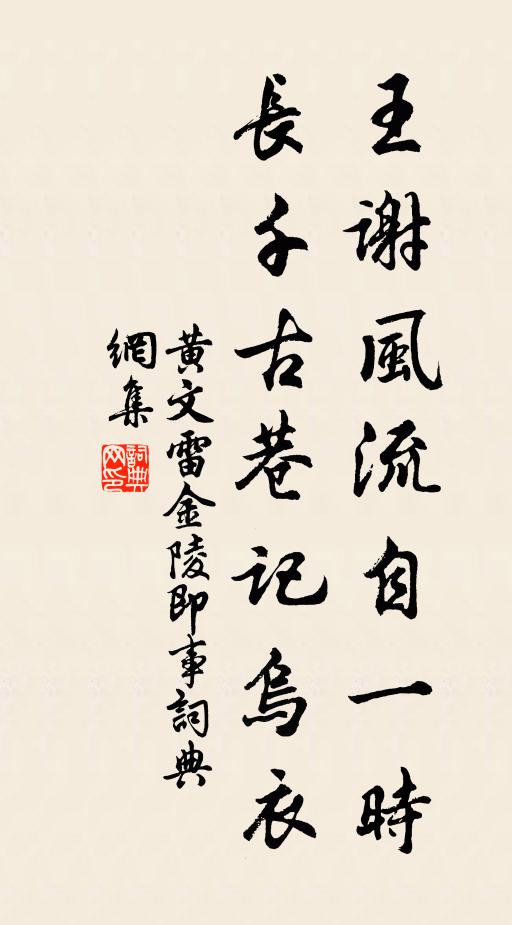 王謝風流自一時
長千古巷記烏衣
黃文雷金陵即事詞典
網集
詞典
网印